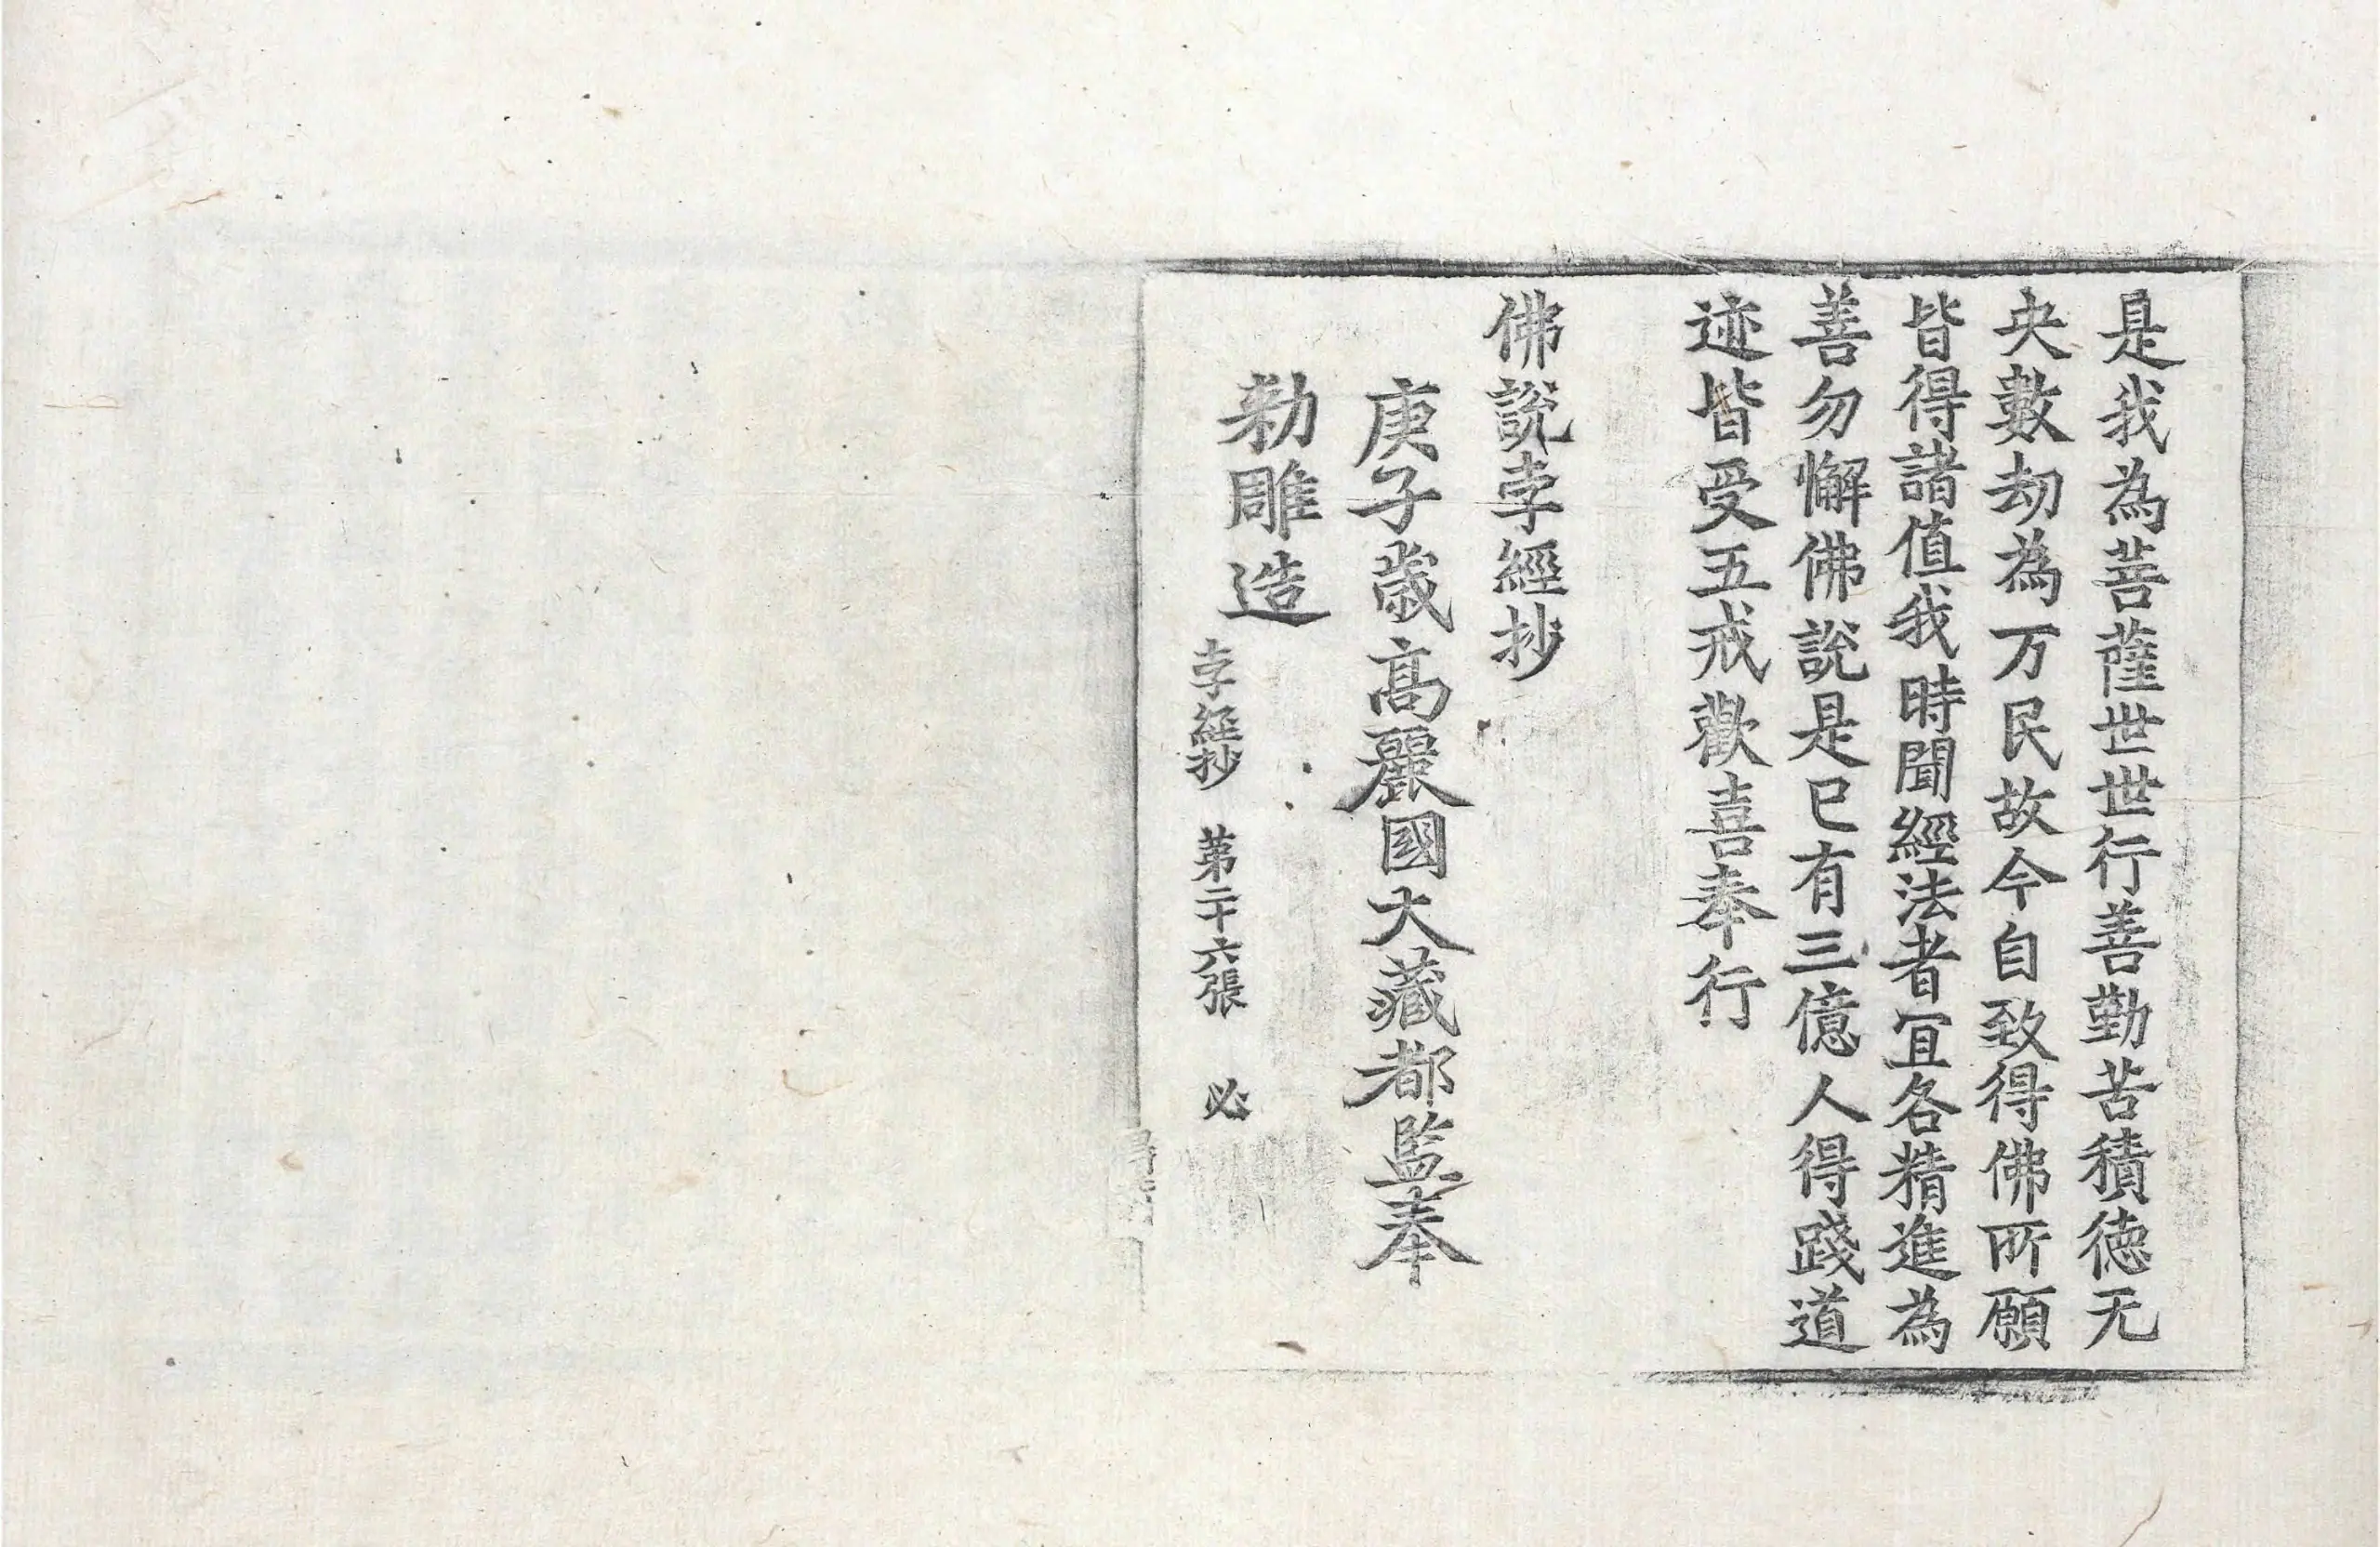 是我為菩薩世世行善勤苦積德无
央數劫為万民故今自致得佛所願
皆得諸值我時聞經法者宜各精進為
善勿懈佛說是已有三億人得踐道
迹皆受五戒歡喜奉行
佛說孛經抄
庚子歲高麗國大藏都監奉
勑雕造
孛經抄 第二十六張 必